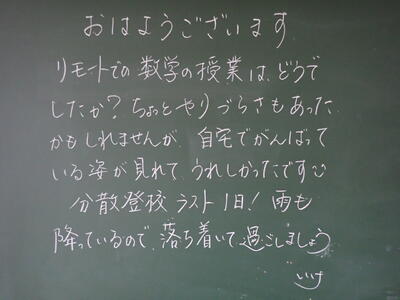 おはようございます
リモートでの数学の授業は、どうで
したか？ちょっとやりづらさもあった
かもしれませんが、自宅でがんばって
いる姿が見れて、うれしかったです
分散登校ラスト1日！雨も
降っているので、落ち着いて過ごしましょう